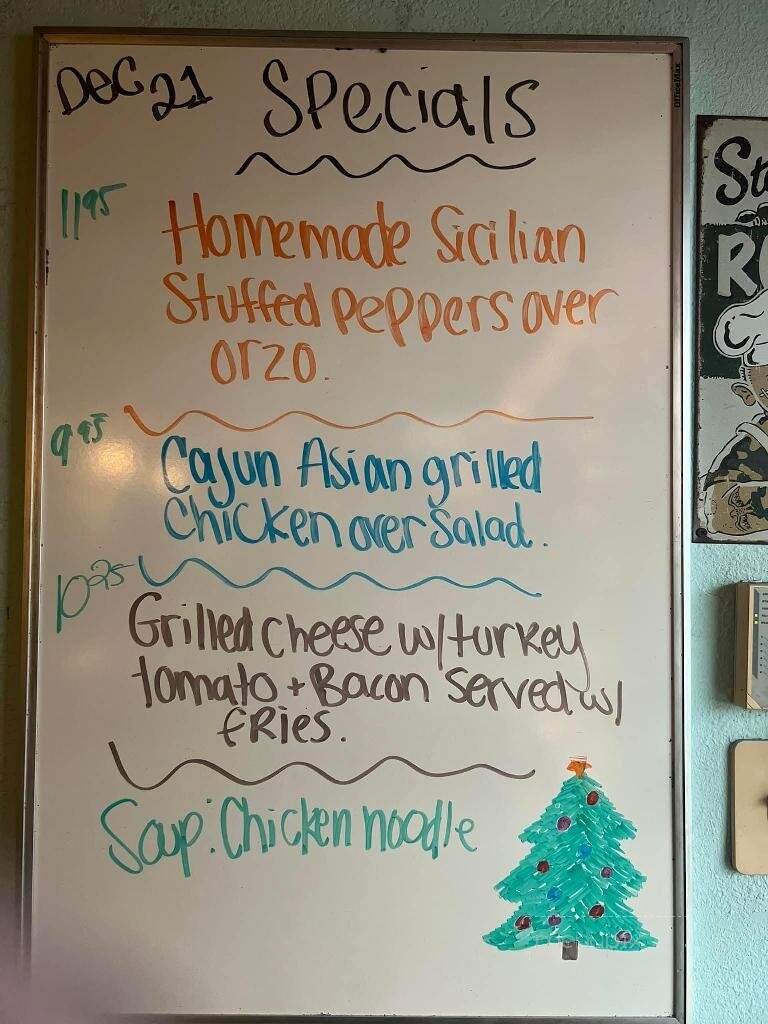 Dec 21 Specials
OfficeMax
11 95 Homemade Sicilian
Stuffed Peppers over
orzo.
9 95 Cajun Asian grilled
Chicken over Salad.
10 25
Grilled Cheese w/turkey
tomato + Bacon Served w/
fries.
Soup: Chicken noodle